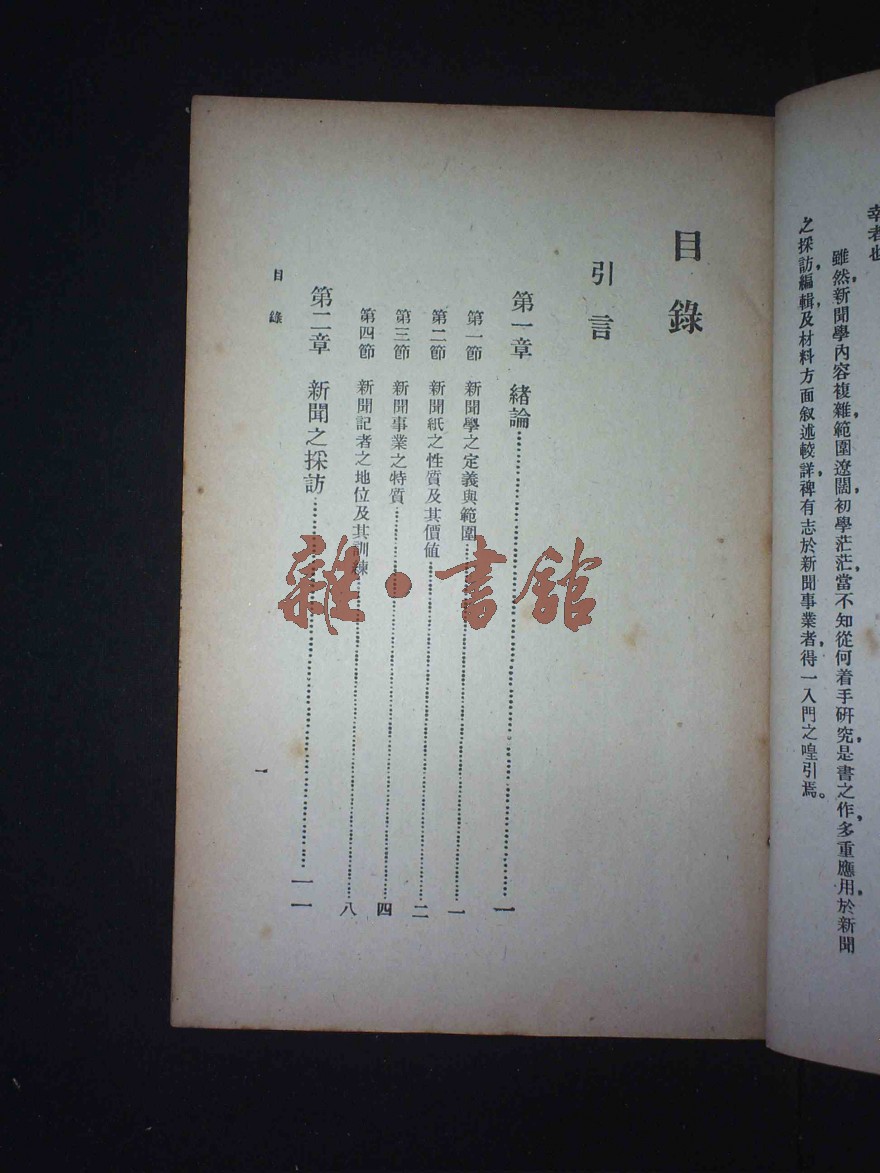 幸者也
雖然，新聞學內容複雜，範圍遼闊，初學茫茫，當不知從何着手研究，是書之作，多重應用，於新聞
之採訪，編輯，及材料方面，叙述較詳，裨有志於新聞事業者，得一入門之喤引焉。
目錄
引言
第一章 緒論……一
第一節 新聞學之定義與範圍……一
第二節 新聞紙之性質及其價值……二
第三節 新聞事業之特質……四
第四節 新聞記者之地位及其訓練……八
第二章 新聞之採訪……一一
目錄
一
雜·書館